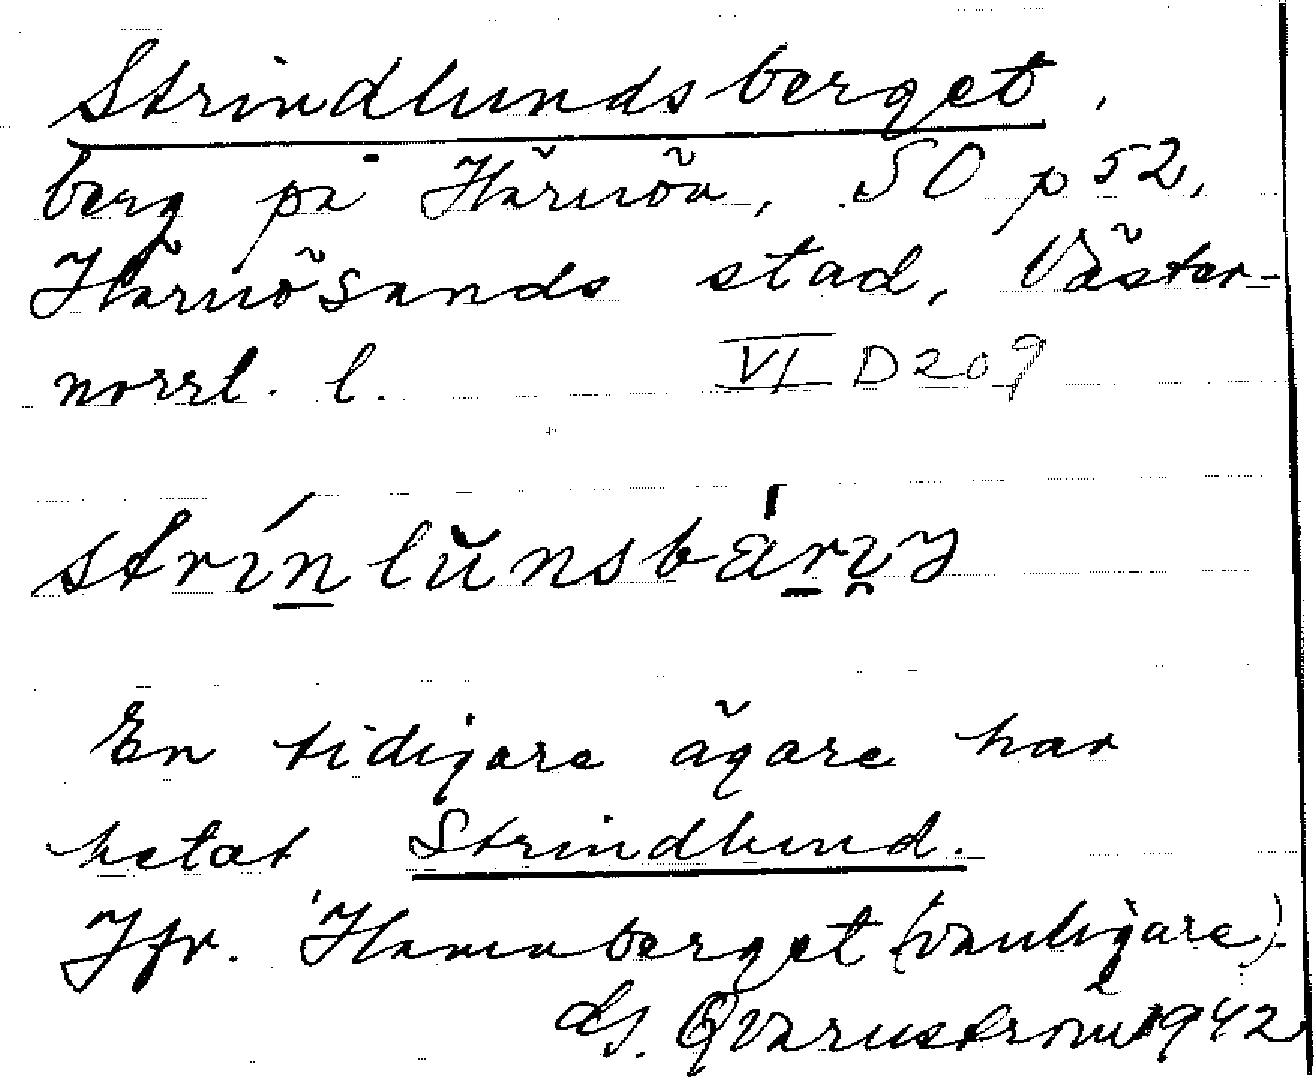 Strindlundsberget,
berg på Härnön, SO p 52,
Härnösands stad, Väster-
norrl. l. VI D209
En tidigare ägare har
hetat Strindlund.
Jfr. Hamnberget (vanligare).
G. Qvarnström 1942